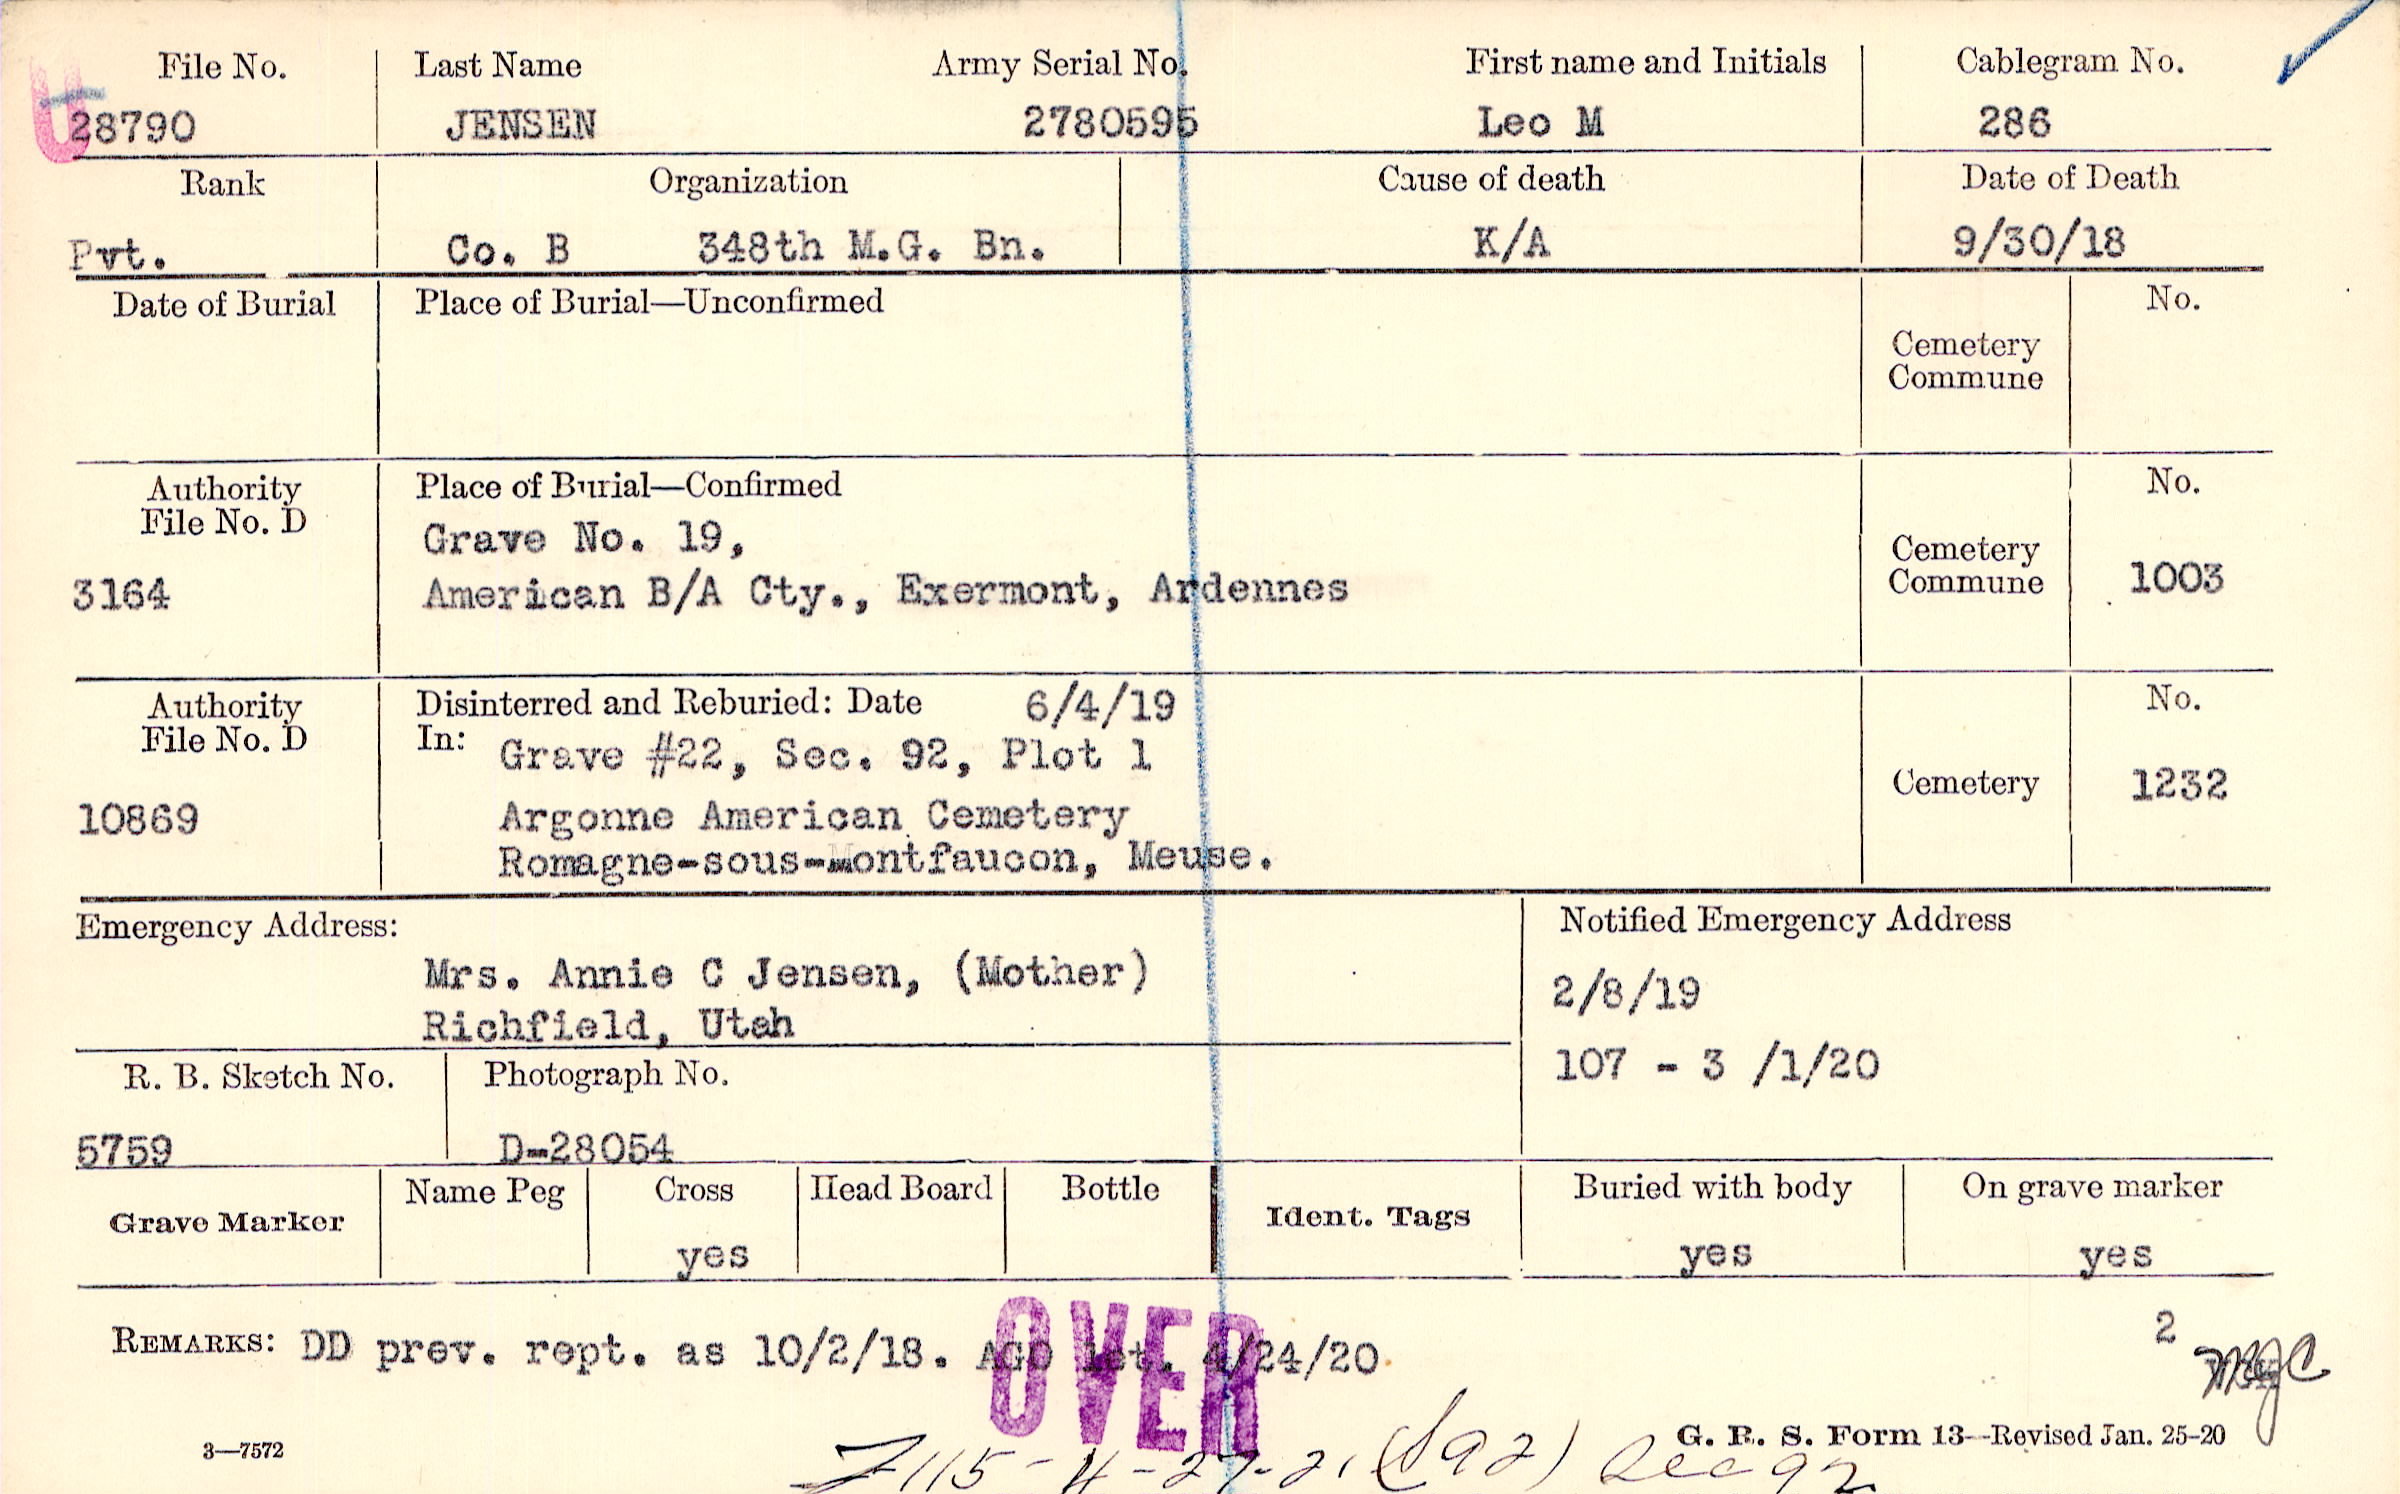 File No. Last Name Army Serial No. First name and Initials Cablegram No.
28790 JENSEN 2780595 Leo M 286
Rank Organization Cause of death Date of Death
Pvt. Co. B 348th M.G. Bn. K/A 9/30/18
Date of Burial Place of Burial—Unconfirmed No.
Cemetery
Commune
Authority Place of Burial—Confirmed No.
File No. D
Grave No. 19,
Cemetery
3164 American B/A Cty., Exermont, Ardennes Commune 1003
Authority Disinterred and Reburied: Date 6/4/19 No.
File No. D In: Grave #22, Sec. 92, Plot 1
Cemetery 1232
10869 Argonne American Cemetery
Romagne-sous-Montfaucon, Meuse.
Emergency Address: Notified Emergency Address
Mrs. Annie C Jensen, (Mother) 2/8/19
Richfield, Utah
R. B. Sketch No. Photograph No. 107 - 3 /1/20
5759 D-28054
Grave Marker Name Peg Cross Head Board Bottle Ident. Tags Buried with body On grave marker
yes yes yes
REMARKS: DD prev. rept. as 10/2/18. AGO let. 4/24/20 2
OVER
3—7572 G. R. S. Form 13—Revised Jan. 25-20
115-4-27-21 (S92) Sec 92